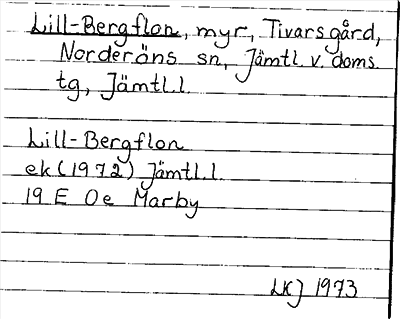 Lill-Bergflon, myr, Tivarsgård,
Norderöns sn, Jämtl. v. doms.
tg, Jämtl. l.
Lill-Bergflon
ek (1972) Jämtl. l.
19 E 0e Marby
LKJ 1973